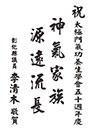 祝太極門氣功養生學會五十週年慶
神氣家族
源遠流長
彰化縣議員
李清木 敬賀